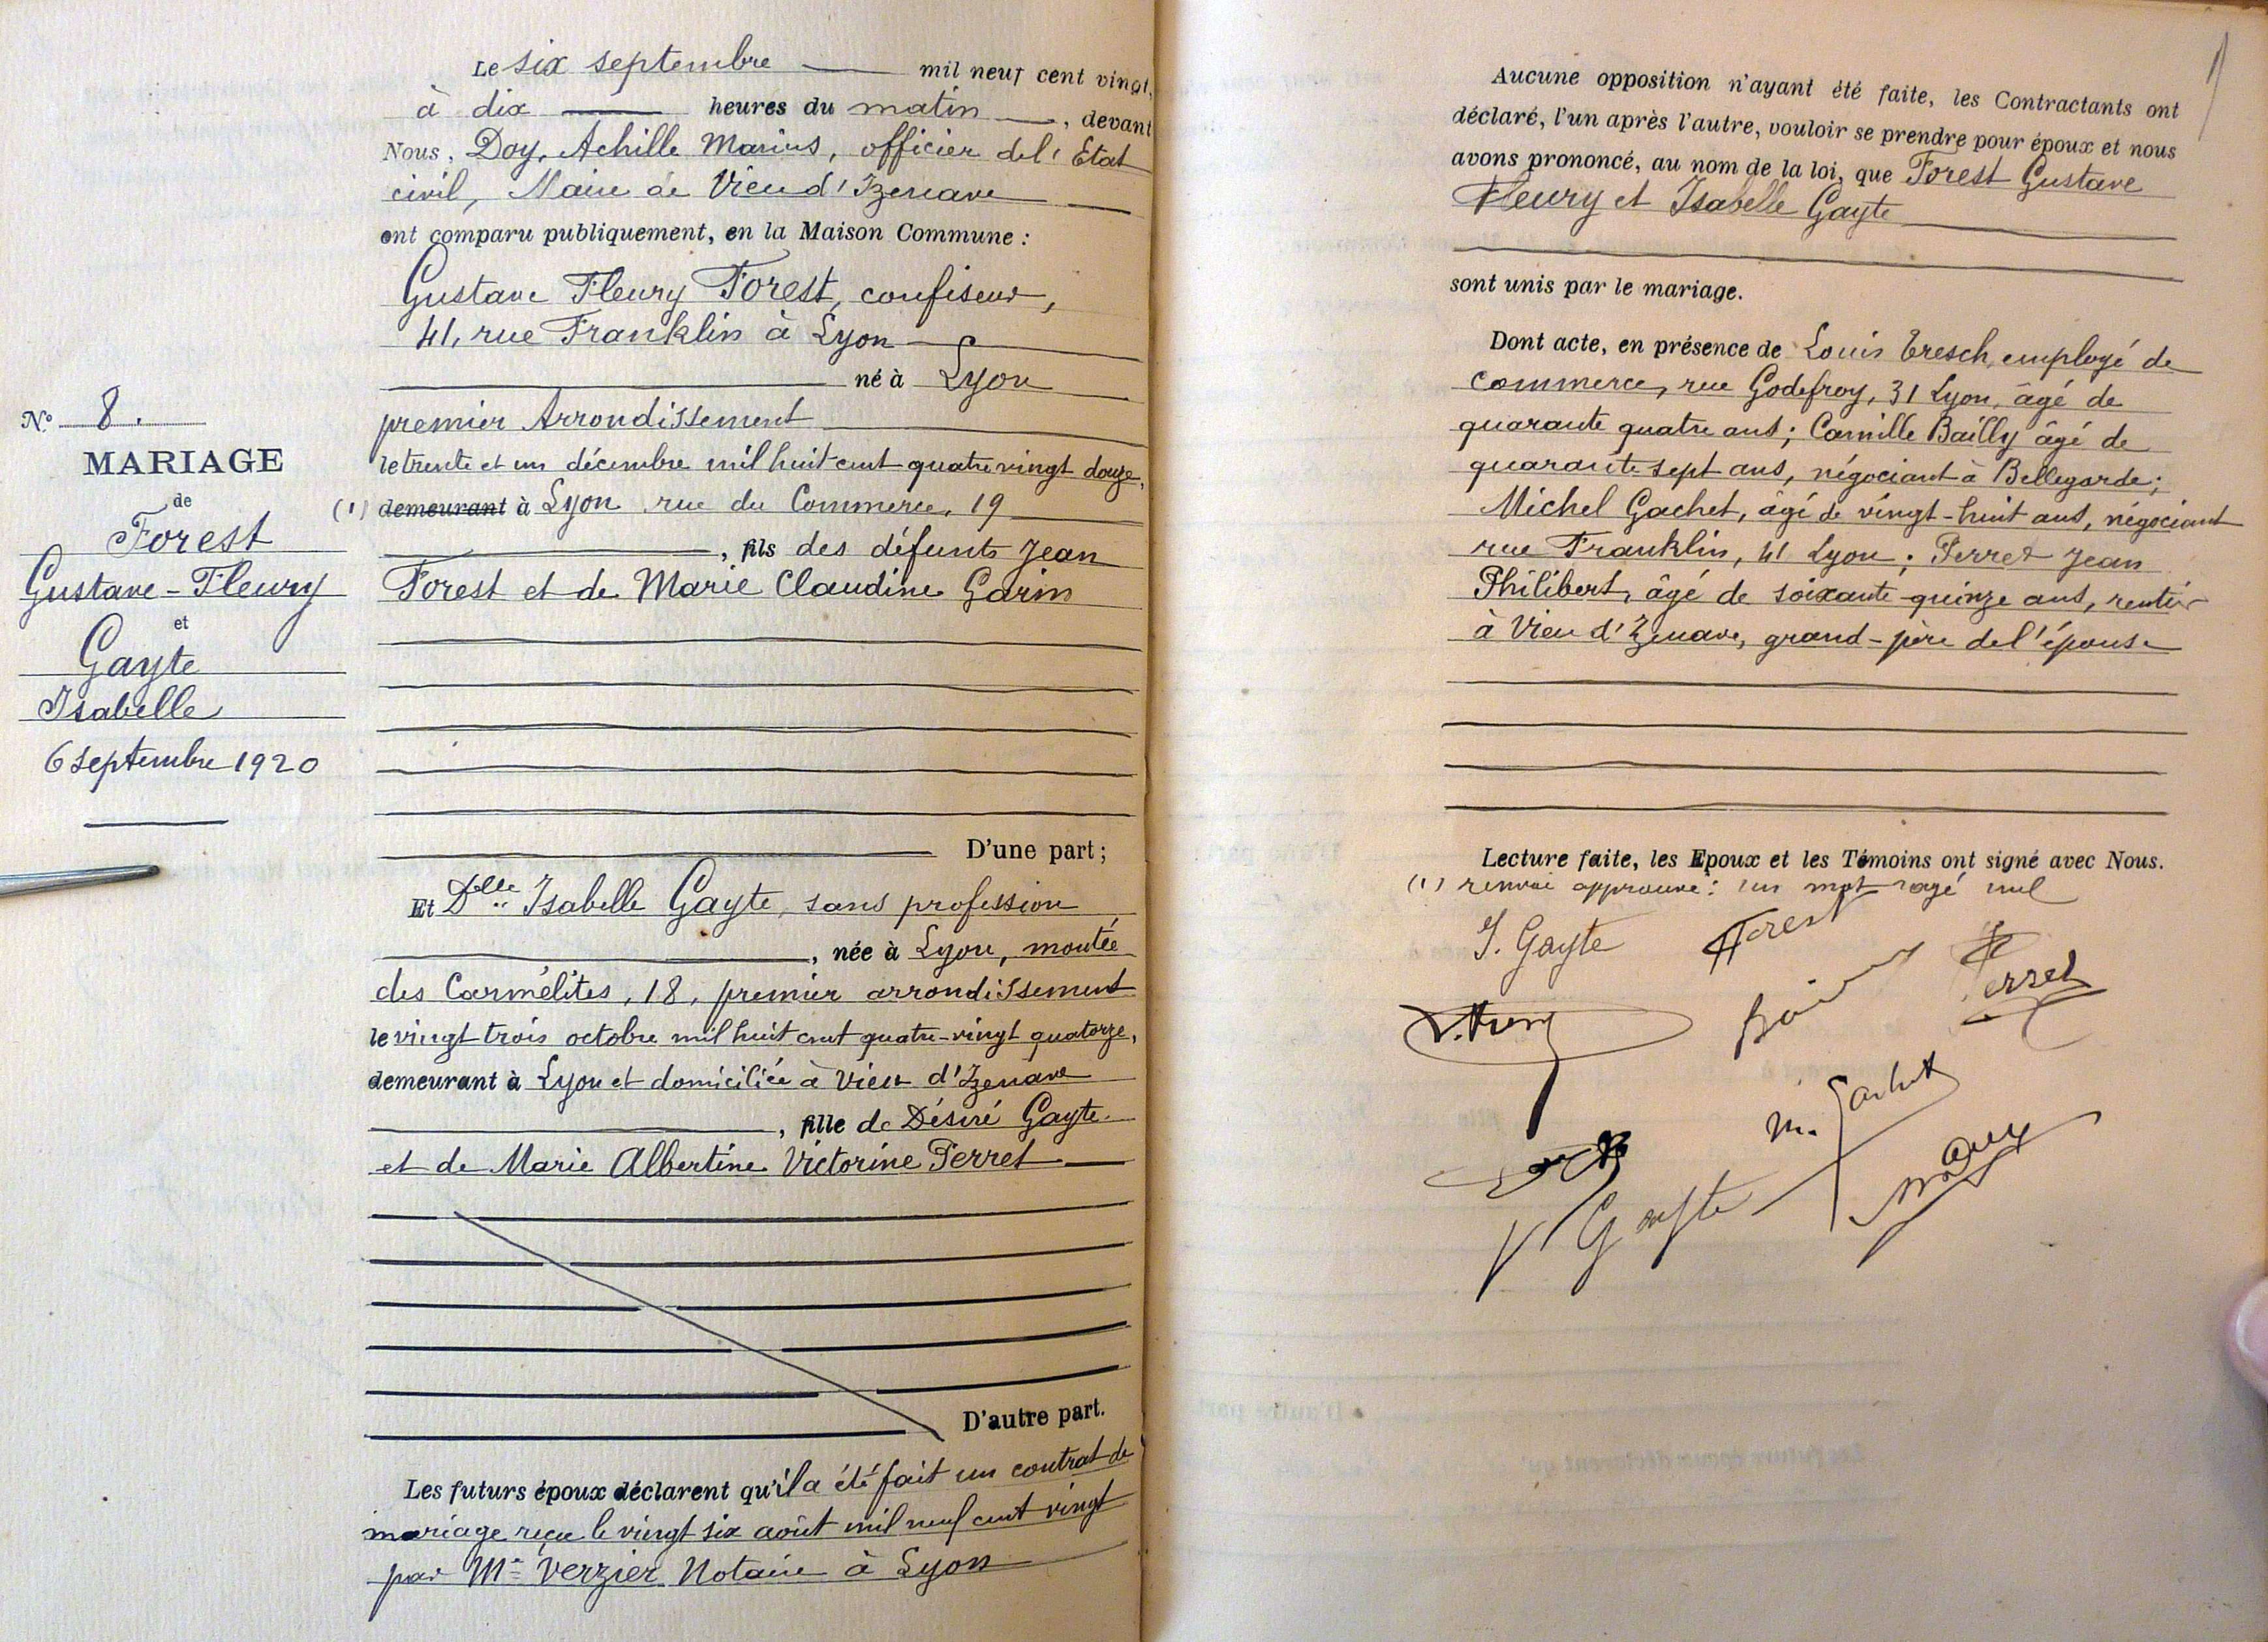 Le six septembre mil neuf cent vingt,
à dix heures du matin, devant
Nous, Doy, Achille Marius, officier de l'Etat
civil, Maire de Vieu d'Izenave
ont comparu publiquement, en la Maison Commune :
Gustave Fleury Forest, confiseur,
41, rue Franklin à Lyon
né à Lyon
premier Arrondissement
le trente et un décembre mil huit cent quatre vingt douze,
(1) demeurant à Lyon rue du Commerce, 19
, fils des défunts Jean
Forest et de Marie Claudine Garin
N° 8.
MARIAGE
de
Forest
Gustave-Fleury
et
Gayte
Isabelle
6 septembre 1920
D'une part ;
Et Delle Isabelle Gayte, sans profession
, née à Lyon, montée
des Carmélites, 18, premier arrondissement
le vingt trois octobre mil huit cent quatre-vingt quatorze,
demeurant à Lyon et domiciliée à Vieu d'Izenave
, fille de Désiré Gayte
et de Marie Albertine Victorine Perret
D'autre part.
Les futurs époux déclarent qu'il a été fait un contrat de
mariage reçu le vingt six août mil neuf cent vingt
par Me Verzier Notaire à Lyon
Aucune opposition n'ayant été faite, les Contractants ont
déclaré, l'un après l'autre, vouloir se prendre pour époux et nous
avons prononcé, au nom de la loi, que Forest Gustave
Fleury et Isabelle Gayte
sont unis par le mariage.
Dont acte, en présence de Louis Tresch, employé de
commerce, rue Godefroy, 31 Lyon, âgé de
quarante quatre ans ; Camille Bailly âgé de
quarante sept ans, négociant à Bellegarde ;
Michel Gachet, âgé de vingt-huit ans, négociant
rue Franklin, 41 Lyon ; Perret Jean
Philibert, âgé de soixante quinze ans, rentier
à Vieu d'Izenave, grand-père de l'épouse
Lecture faite, les Epoux et les Témoins ont signé avec Nous.
(1) renvoi approuvé : un mot rayé nul
I. Gayte Forest
Perret
M. Gachet
V Gayte